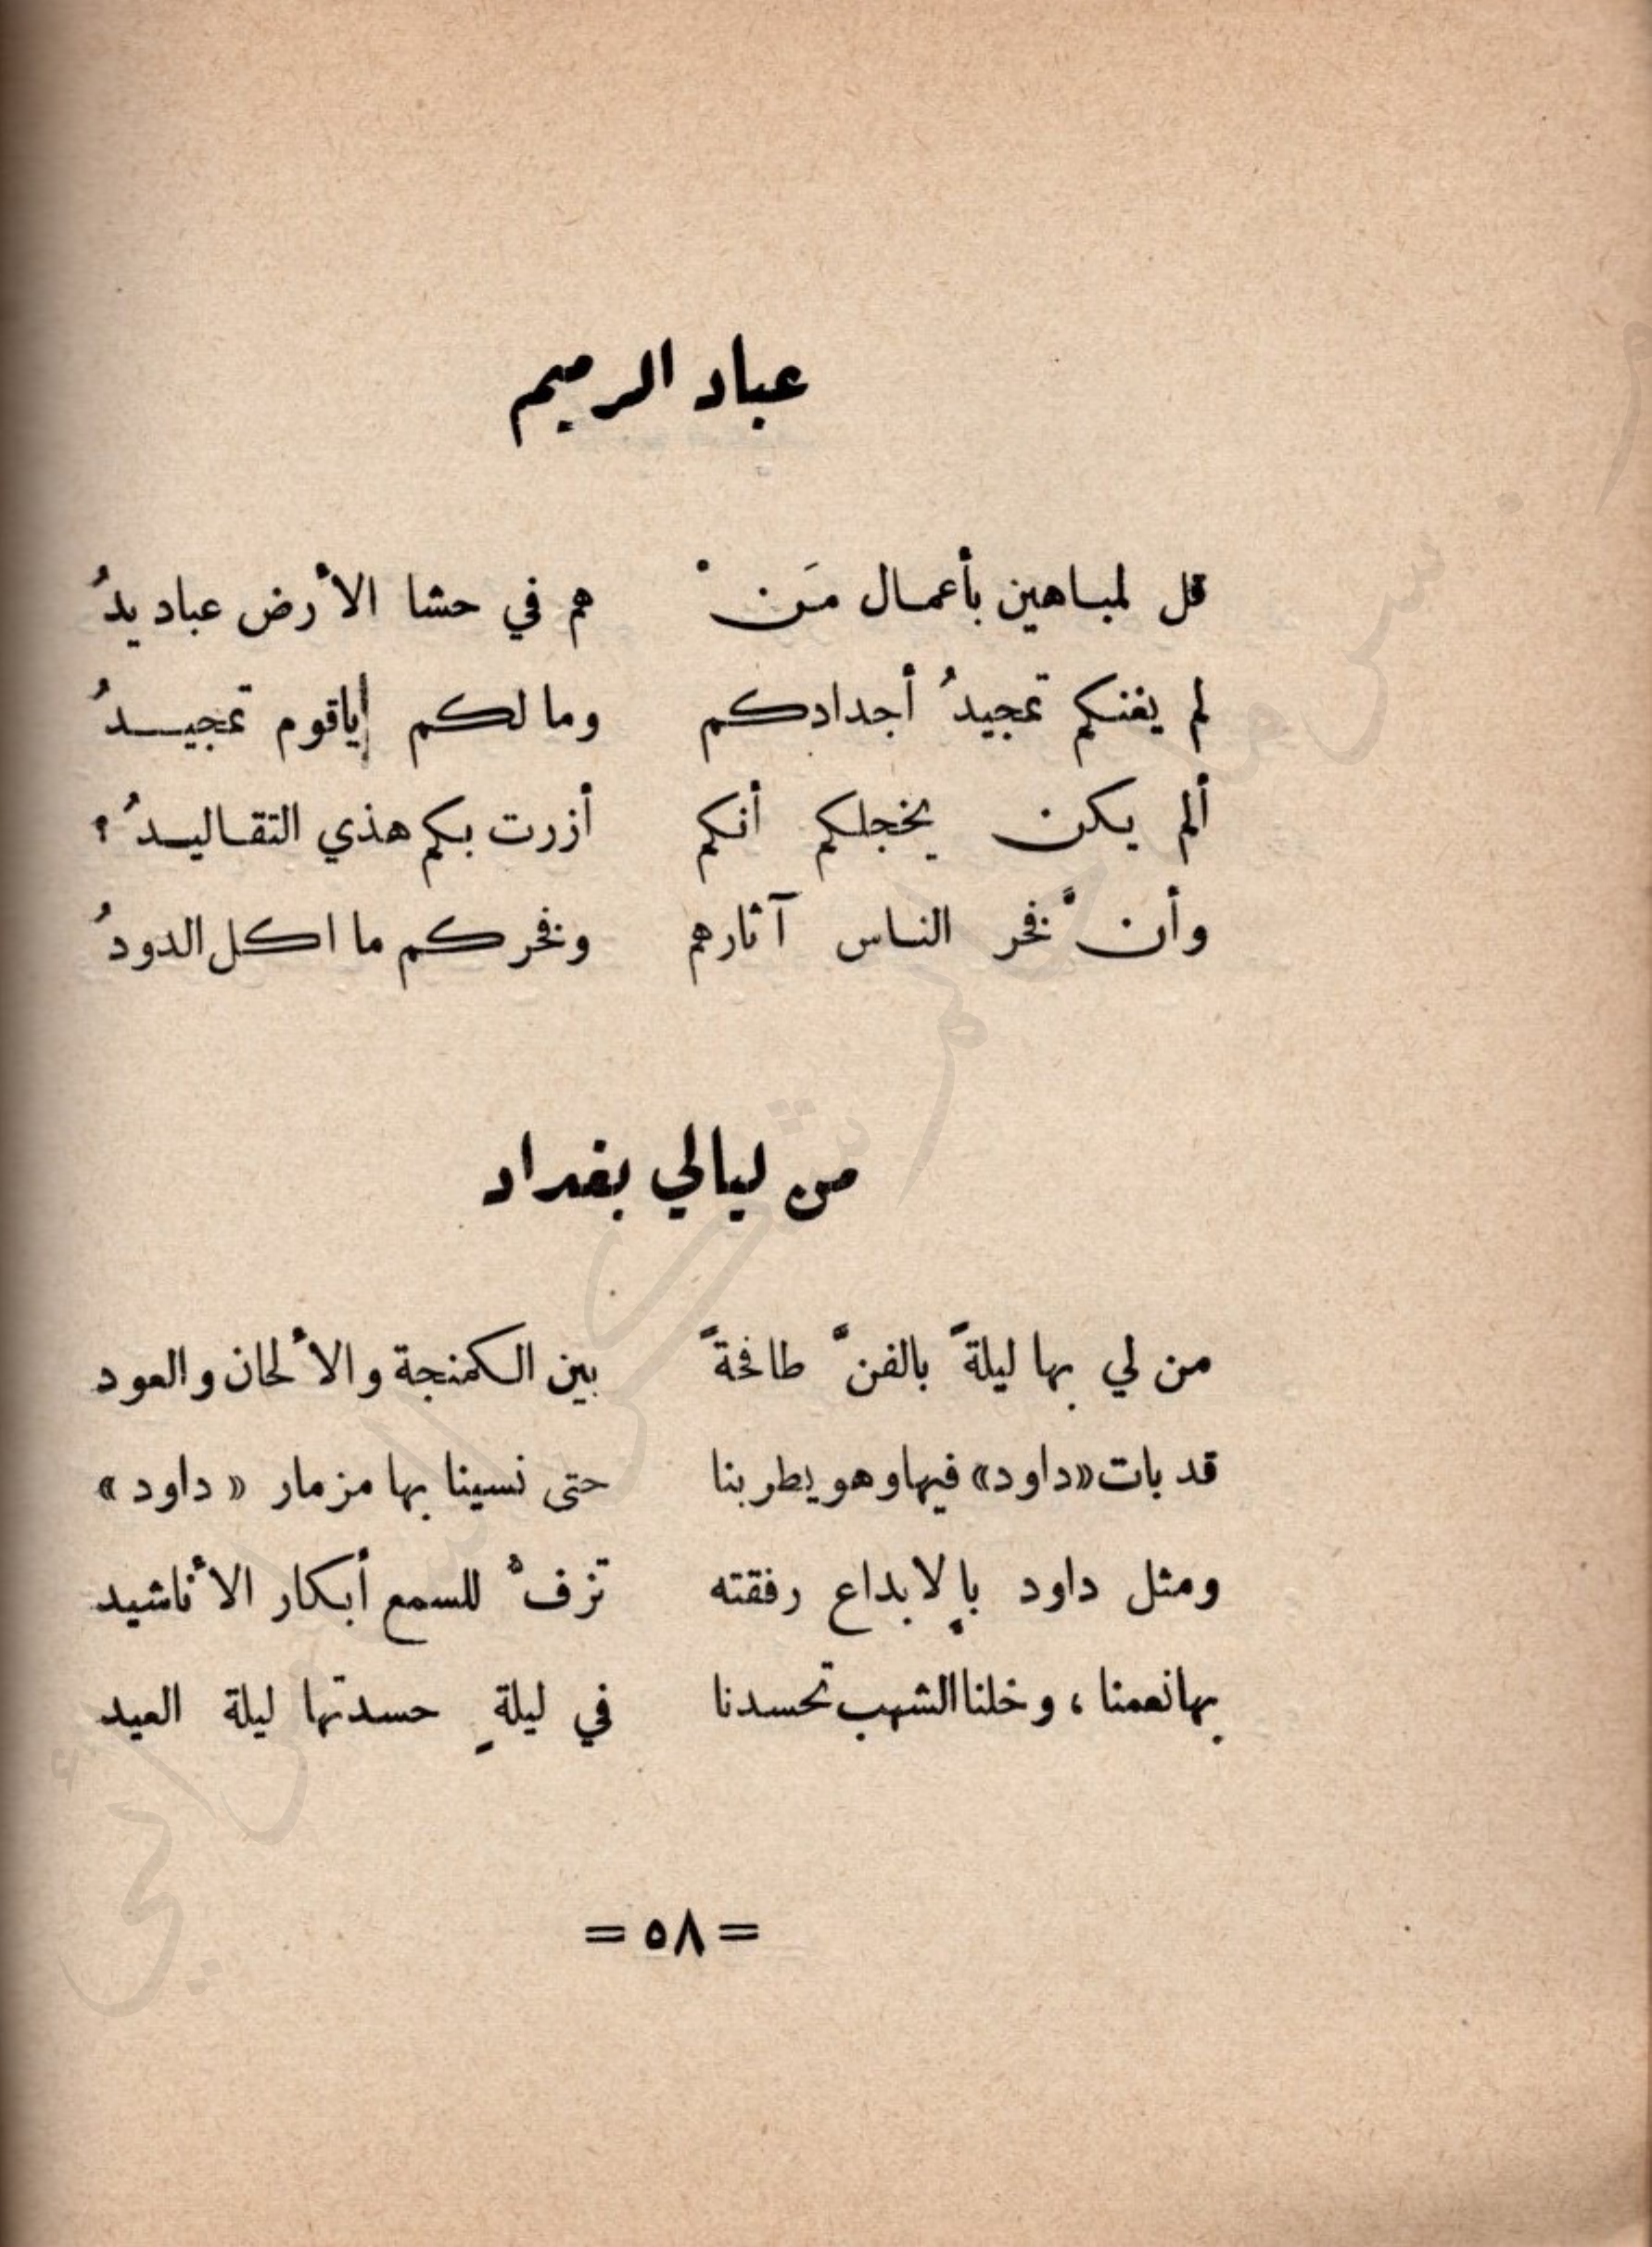 عباد الرميم
قل لمباهين بأعمال مَنْ هم في حشا الأرض عباديدُ
لم يغنكم تمجيدُ أجدادكم وما لكم إياقوم تمجيدُ
ألم يكن يخجلكم أنكم أزرت بكم هذي التقاليدُ ؟
وأنَّ فخر الناس آثارهم وفخركم ما اكل الدودُ
من ليالي بغداد
من لي بها ليلةً بالفنِّ طافحةً بين الكمنجة والألحان والعود
قد بات «داود» فيها وهو يطربنا حتى نسينا بها مزمار « داود »
ومثل داود بالإبداع رفقته تزفُّ للسمع أبكار الأناشيد
بها نعمنا ، وخلنا الشهب تحسدنا في ليلةٍ حسدتها ليلة العيد
= ٥٨ =